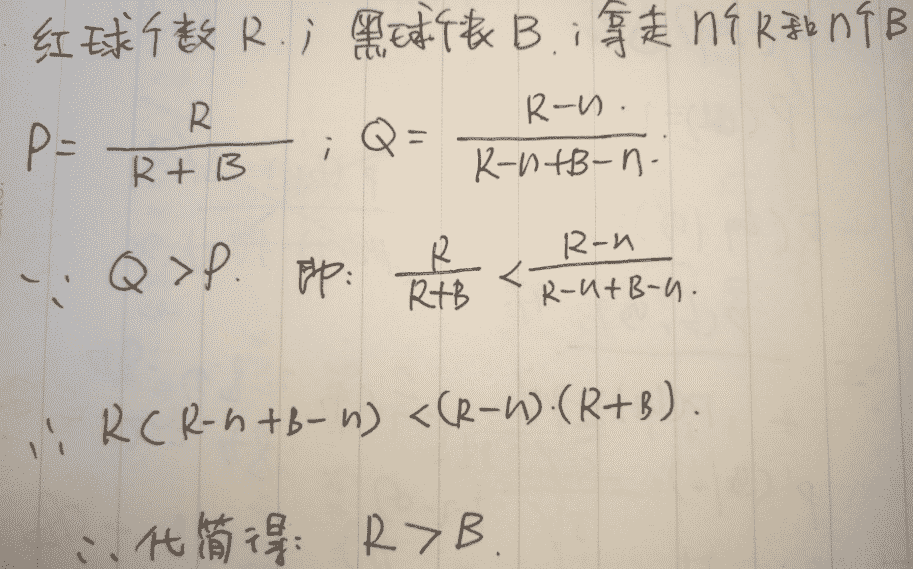 红球个数 R.; 黑球个数 B.; 拿走 n个R和n个B
P = R / (R + B) ; Q = (R-n) / (R-n+B-n).
∵ Q > P. 即: R / (R+B) < (R-n) / (R-n+B-n).
∴ R(R-n+B-n) < (R-n)·(R+B).
∴ 化简得: R > B.